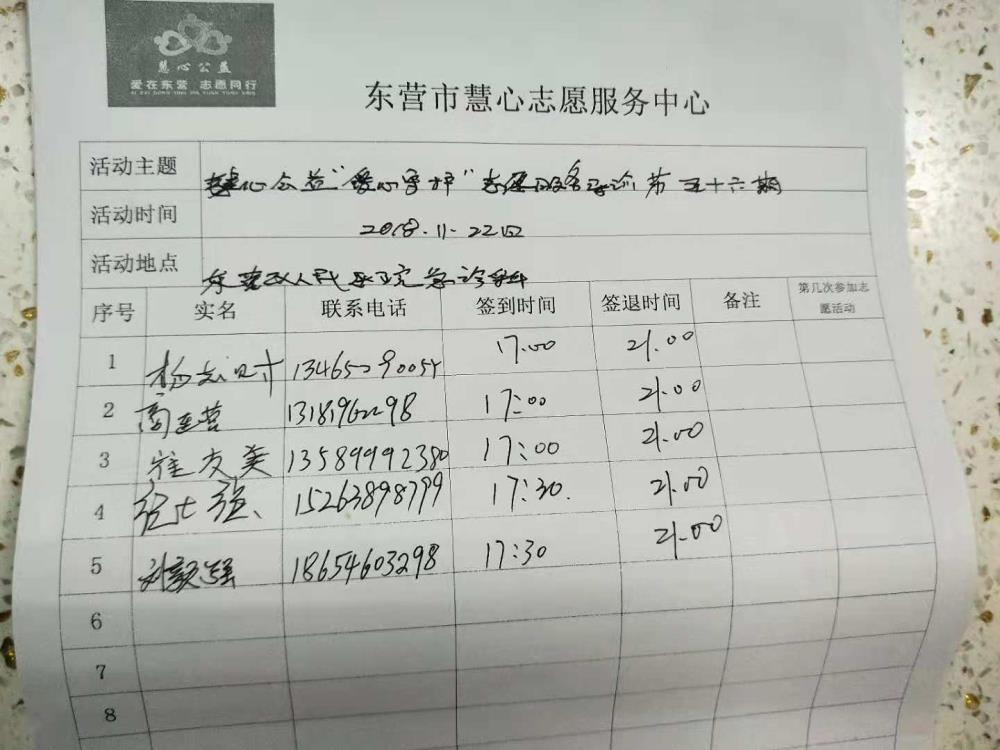 慧心公益
爱在东营 志愿同行
AI ZAI DONG YING ZHI YUAN TONG XING
东营市慧心志愿服务中心
活动主题 慧心公益“爱心守护”志愿服务导诊第五十六期
活动时间 2018.11.22日
活动地点 东营市人民医院急诊科
序号 实名 联系电话 签到时间 签退时间 备注 第几次参加志愿活动
1 17:00 21:00
2 商连营 17:00 21:00
3 崔友英 13589992380 17:00 21:00
4 15263898799 17:30 21:00
5 刘毅强 18654603298 17:30 21:00
6
7
8